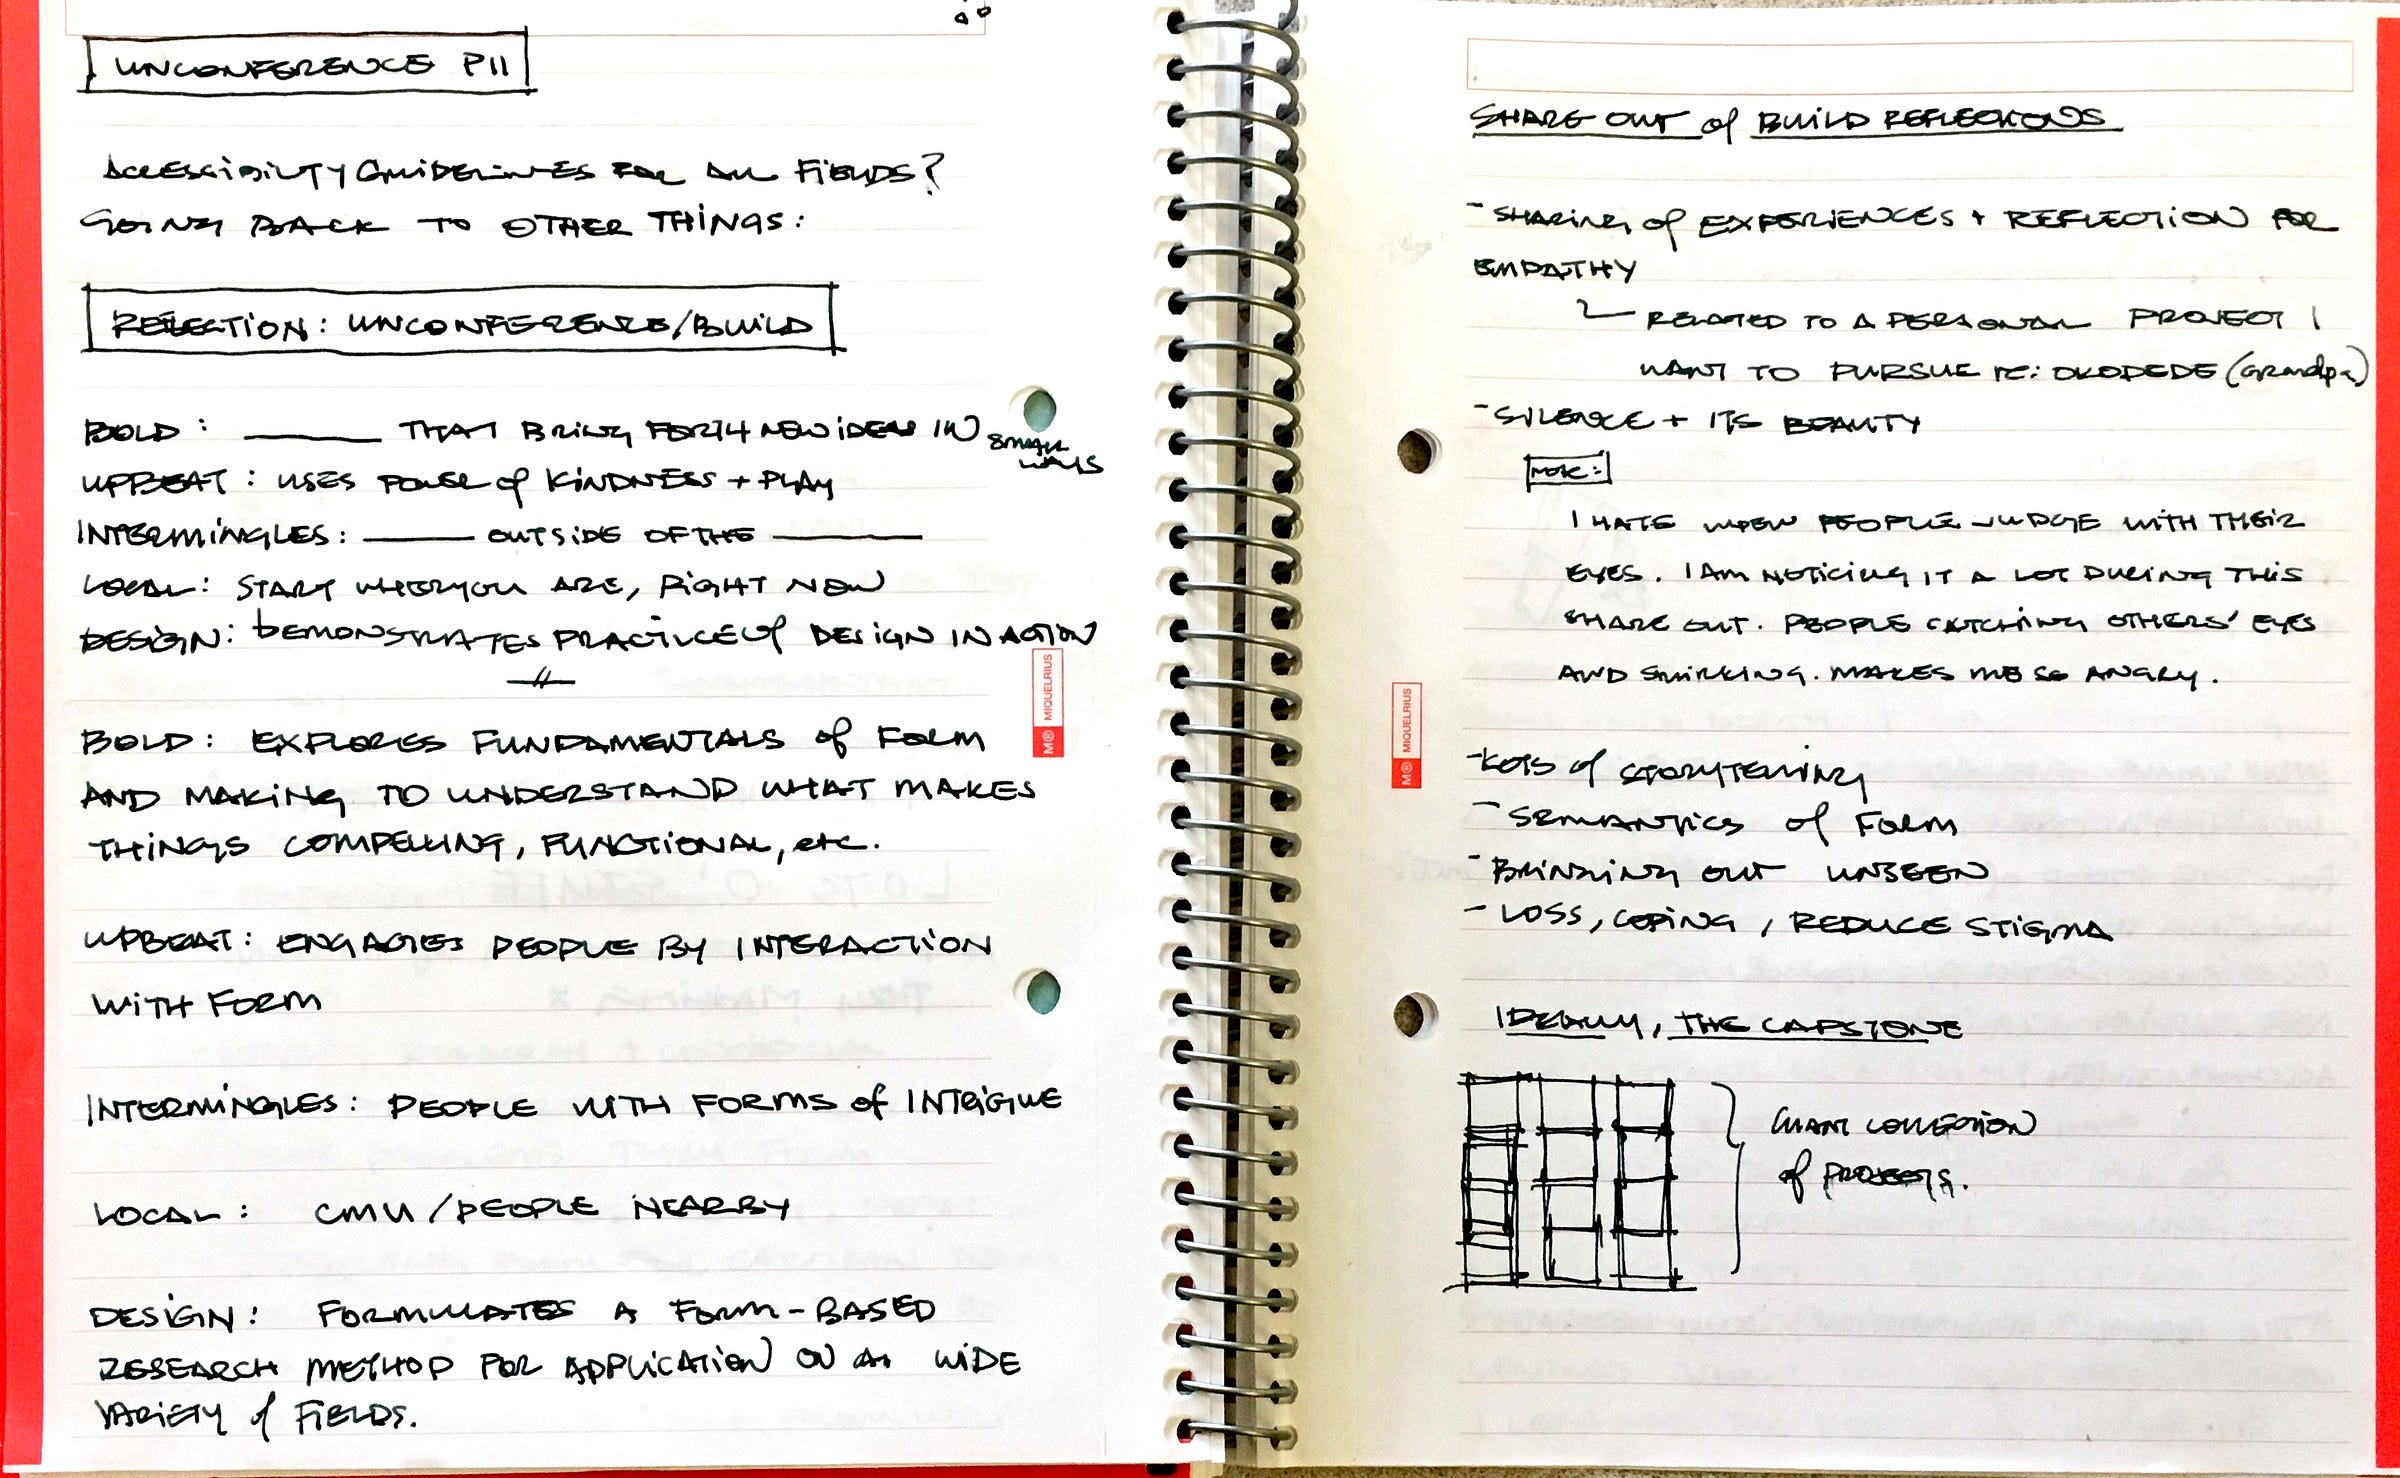 UNCONFERENCE PII
ACCESSIBILITY GUIDELINES FOR ALL FIELDS?
GOING BACK TO OTHER THINGS:
REFLECTION: UNCONFERENCE/BUILD
BOLD: ____ THAT BRING FORTH NEW IDEAS IN SMALL WAYS
UPBEAT: USES POWER of KINDNESS + PLAY
INTERMINGLES: ____ OUTSIDE OF THE ____
LOCAL: START WHERE YOU ARE, RIGHT NOW
DESIGN: DEMONSTRATES PRACTICE of DESIGN IN ACTION
BOLD: EXPLORES FUNDAMENTALS of FORM
AND MAKING TO UNDERSTAND WHAT MAKES
THINGS COMPELLING, FUNCTIONAL, etc.
UPBEAT: ENGAGES PEOPLE BY INTERACTION
WITH FORM
INTERMINGLES: PEOPLE WITH FORMS of INTRIGUE
LOCAL: CMU/PEOPLE NEARBY
DESIGN: FORMULATES A FORM-BASED
RESEARCH METHOD FOR APPLICATION ON A WIDE
VARIETY of FIELDS.
M® MIQUELRIUS
SHARE OUT of BUILD REFLECTIONS
- SHARING of EXPERIENCES + REFLECTION FOR
EMPATHY
RELATED TO A PERSONAL PROJECT I
WANT TO PURSUE re: DKODEDE (Grandpa)
- SILENCE + ITS BEAUTY
NOTE:
I HATE WHEN PEOPLE JUDGE WITH THEIR
EYES. I AM NOTICING IT A LOT DURING THIS
SHARE OUT. PEOPLE CATCHING OTHERS' EYES
AND SMIRKING. MAKES ME SO ANGRY.
- LOTS of STORYTELLING
- SEMANTICS of FORM
- BRINGING OUT UNSEEN
- LOSS, COPING, REDUCE STIGMA
IDEALLY, THE CAPSTONE
GIANT COLLECTION
of PROJECTS.
M® MIQUELRIUS